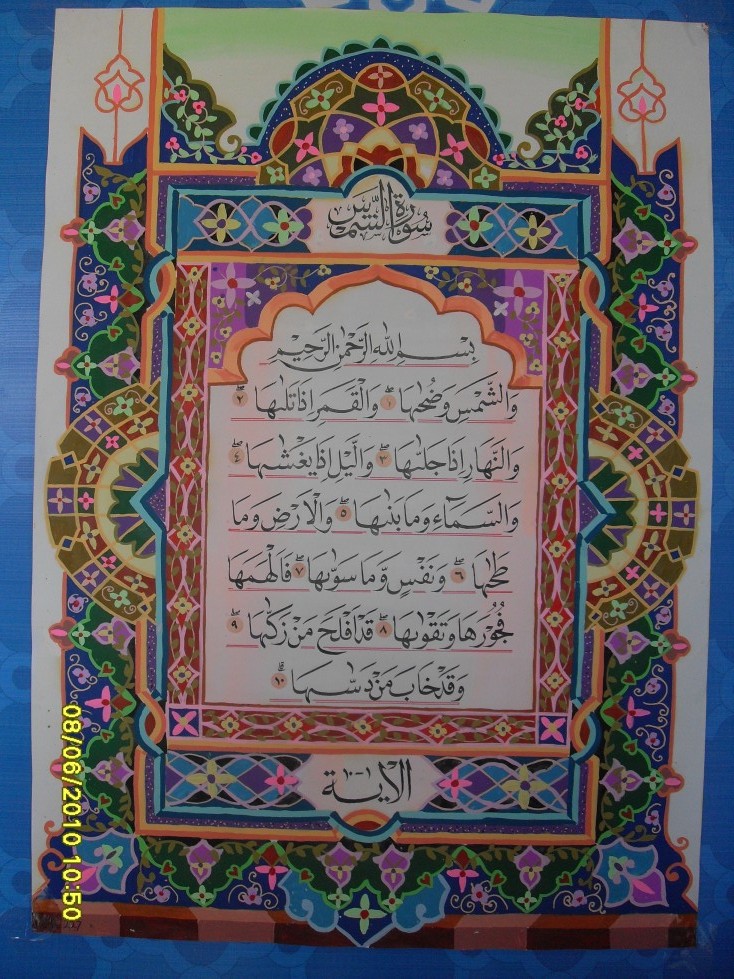 سُوْرَةُ الشَّمْسِ
بِسْمِ اللّٰهِ الرَّحْمٰنِ الرَّحِيْمِ
وَالشَّمْسِ وَضُحٰىهَا ١ وَالْقَمَرِ اِذَا تَلٰىهَا ٢
وَالنَّهَارِ اِذَا جَلّٰىهَا ٣ وَالَّيْلِ اِذَا يَغْشٰىهَا ٤
وَالسَّمَاۤءِ وَمَا بَنٰىهَا ٥ وَالْاَرْضِ وَمَا
طَحٰىهَا ٦ وَنَفْسٍ وَّمَا سَوّٰىهَا ٧ فَاَلْهَمَهَا
فُجُوْرَهَا وَتَقْوٰىهَا ٨ قَدْ اَفْلَحَ مَنْ زَكّٰىهَا ٩
وَقَدْ خَابَ مَنْ دَسّٰىهَا ١٠
الاية ١-١٠
08/06/2010 10:50